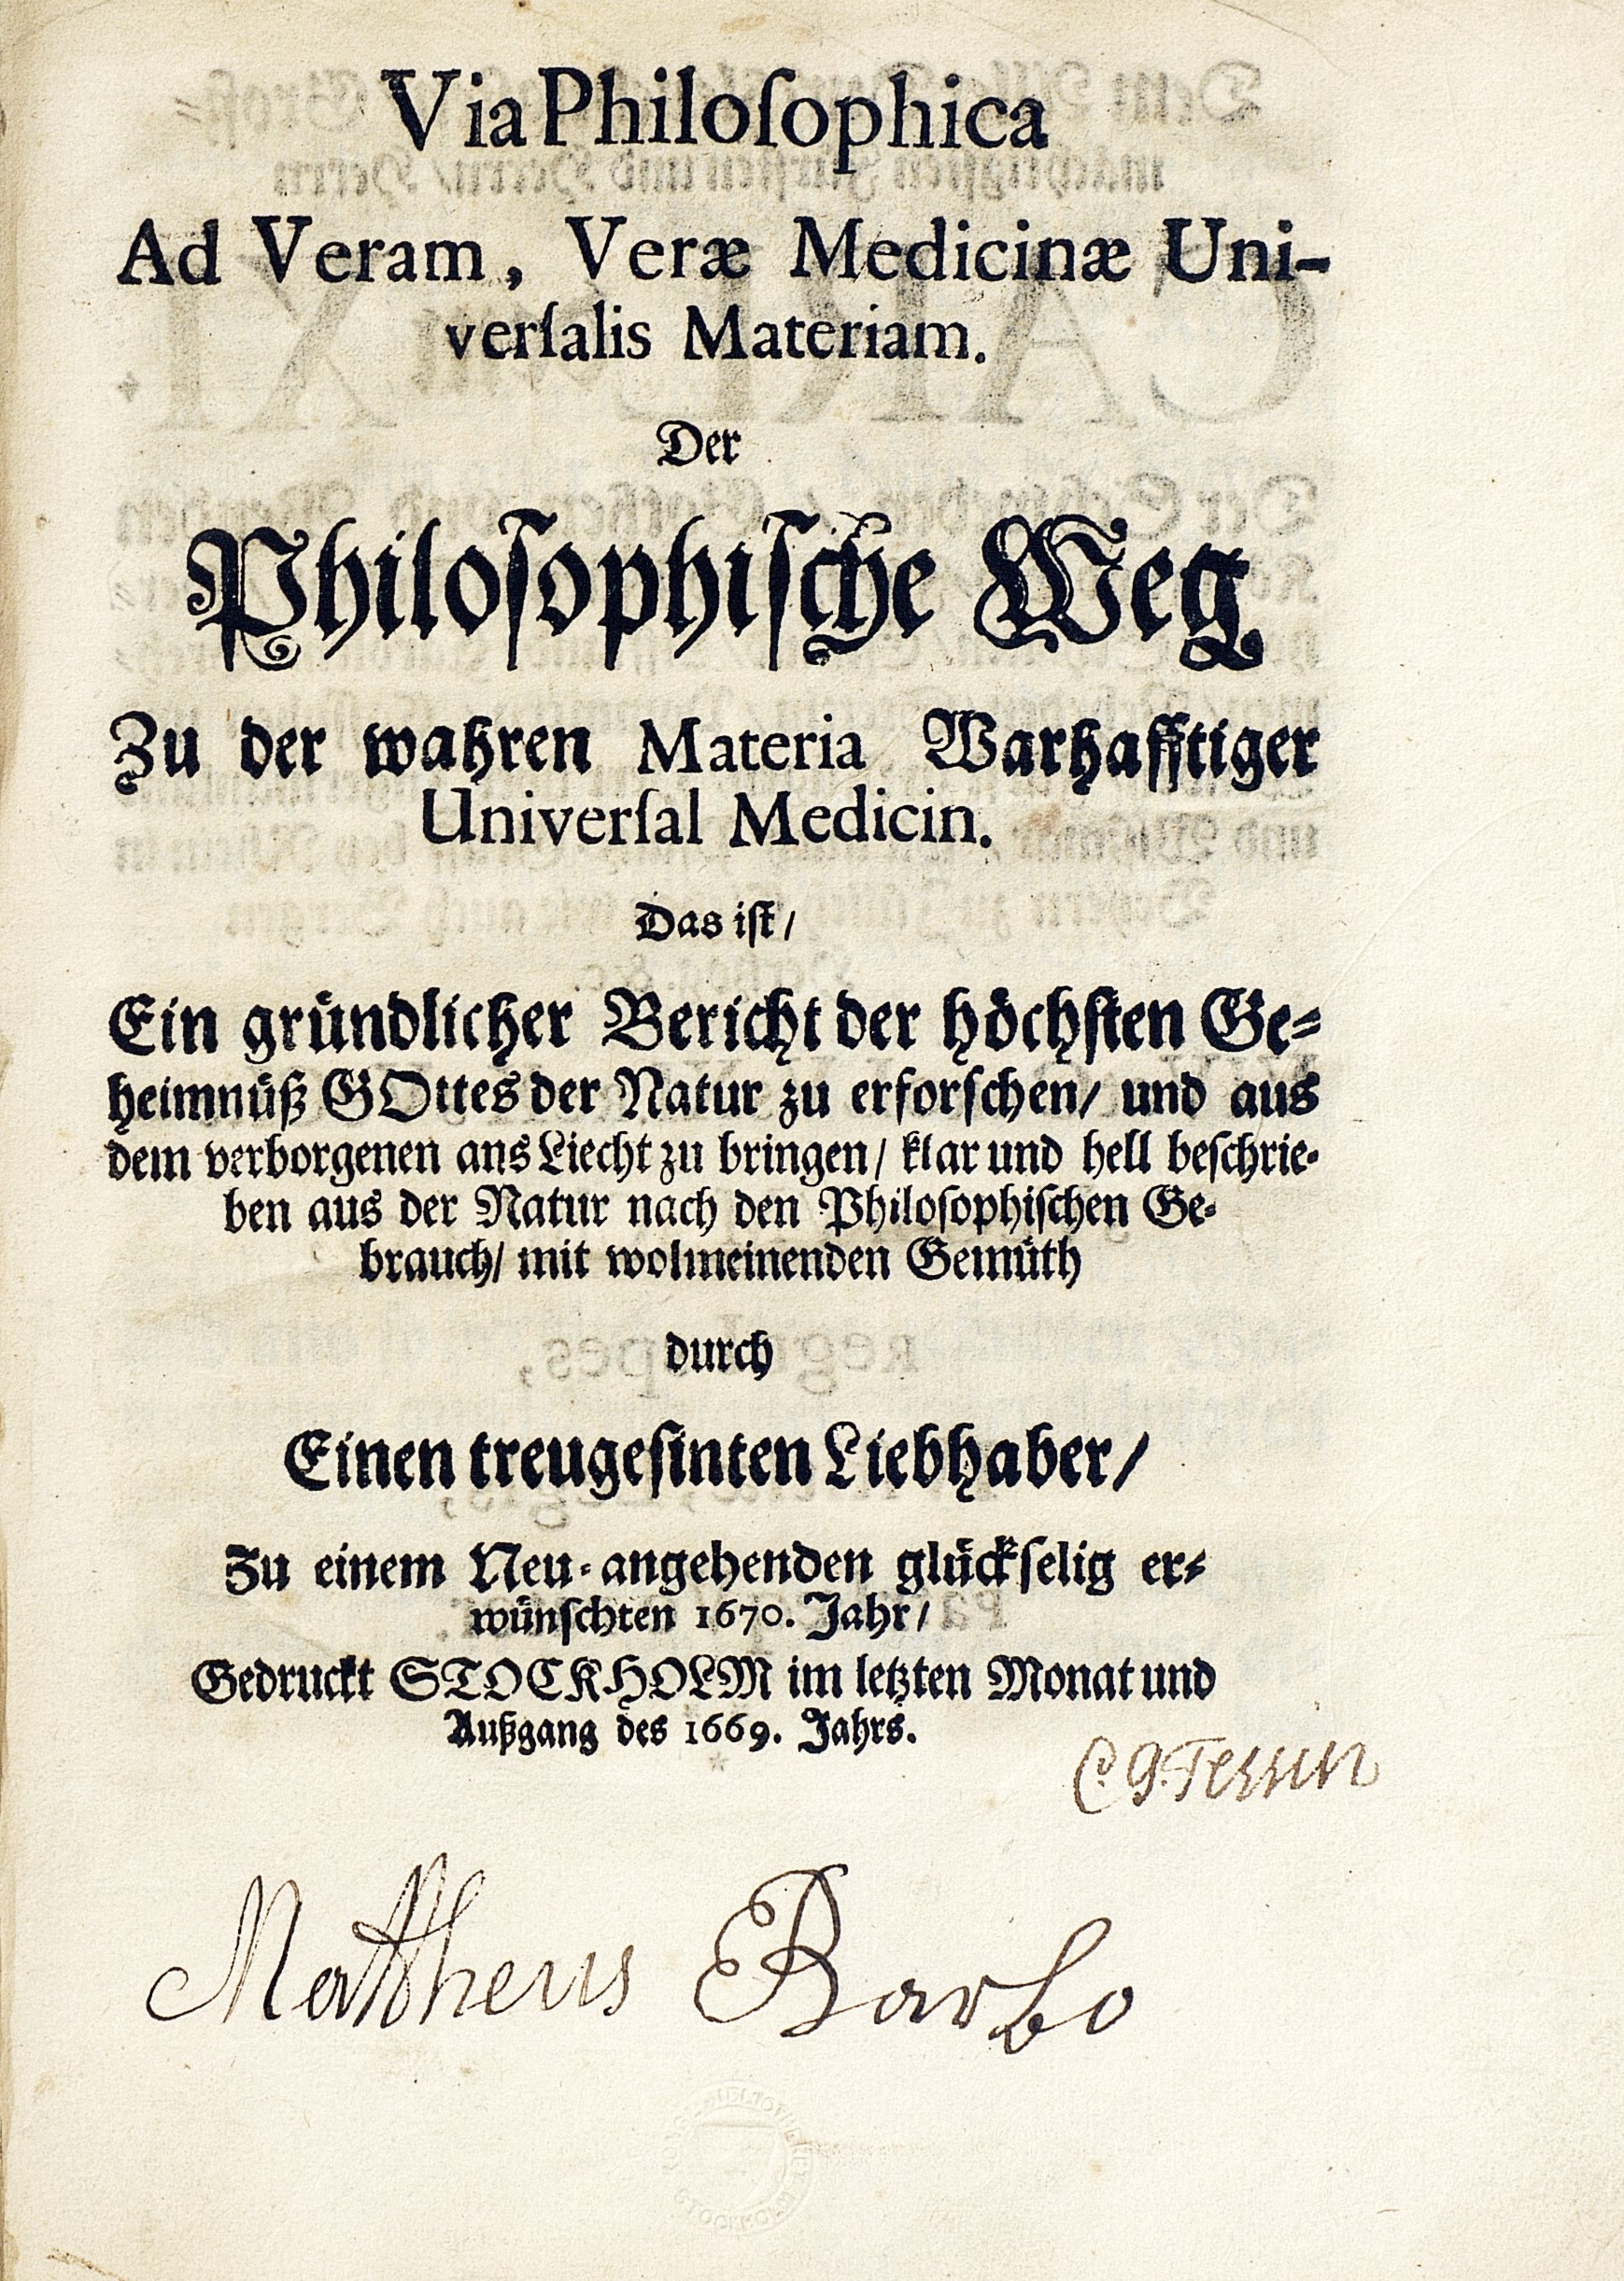 Via Philoſophica
Ad Veram, Veræ Medicinæ Uni-
verſalis Materiam.
Der
Philoſophiſche Weg
Zu der wahren Materia Warhafftiger
Univerſal Medicin.
Das iſt/
Ein gründlicher Bericht der höchſten Ge⸗
heimnüß GOttes der Natur zu erforſchen/ und aus
dem verborgenen ans Liecht zu bringen/ klar und hell beſchrie⸗
ben aus der Natur nach den Philoſophiſchen Ge⸗
brauch/ mit wolmeinenden Gemüth
durch
Einen treugeſinten Liebhaber/
Zu einem Neu⸗angehenden glückſelig er⸗
wünſchten 1670. Jahr/
Gedruckt STOCKHOLM im letzten Monat und
Außgang des 1669. Jahrs.
C. G. Tessin
Mattheus Barbo